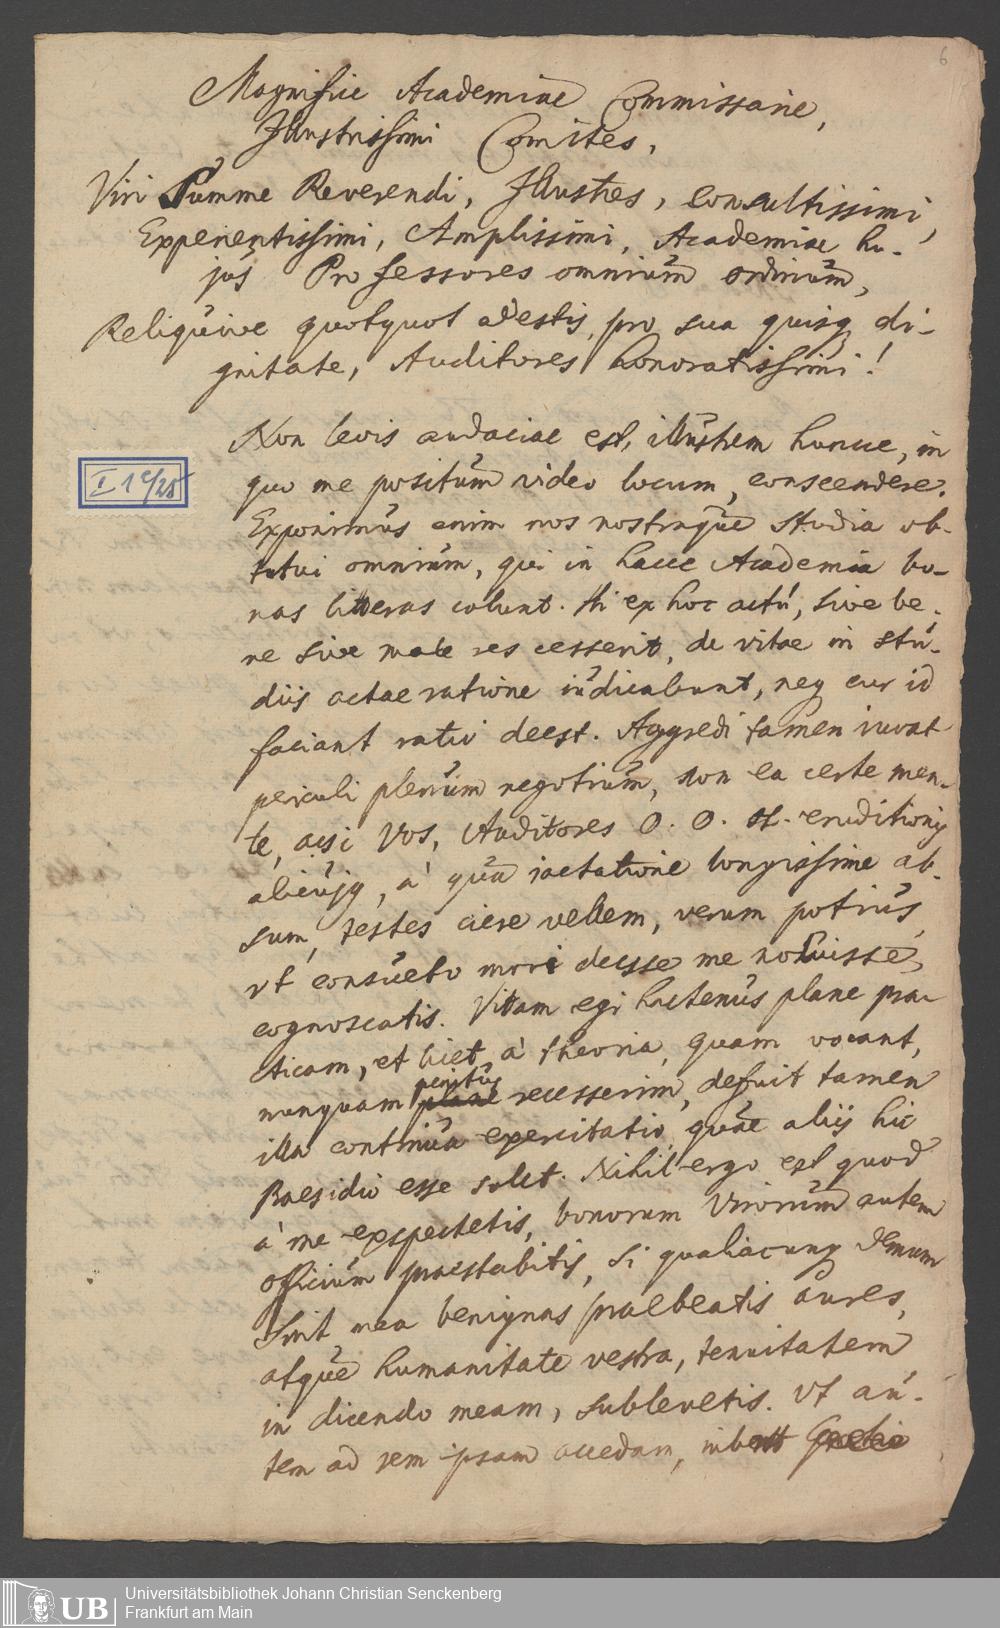 6
Magnifice Academiae Commissarie,
Illustrissimi Comites,
Viri Summe Reverendi, Illustres, Consultissimi,
Experientissimi, Amplissimi, Academiae hu-
jus Professores omnium ordinum,
Reliquive quotquot adestis, pro sua quisq di-
gnitate, Auditores honoratissimi!
Non levis audaciae est, illustrem huncce, in
quo me positum video locum, conscendere.
I 1c/28
Exponimus enim nos nostraque studia ob-
tutui omnium, qui in hacce Academia bo-
nas litteras colunt. Hi ex hoc actu, sive be-
ne sive male res cesserit, de vitae in stu-
diis actae ratione iudicabunt, neq cur id
faciant ratio deest. Aggredi tamen iuvat
periculi plenum negotium, non ea certe men-
te, acsi Vos, Auditores O. O. eruditionis
alicujq, à qua iactatione longissime ab-
sum, testes ciere vellem, verum potius,
vt consueto mori deesse me noluisse
cognoscatis. Vitam egi hactenus plane pra-
cticam, et licet à theoria, quam vocant,
nunquam penitus plane recesserim, defuit tamen
illa continua exercitatio, quae aliis hic
Praesidio esse solet. Nihil ergo est quod
à me exspectetis, bonorum Virorum autem
officium praestabitis, si qualiacunq demum
sint mea benignas praebeatis aures,
atque humanitate vestra, tenuitatem
in dicendo meam, sublevetis. Vt au-
tem ad rem ipsam accedam,
UB
Universitätsbibliothek Johann Christian Senckenberg
Frankfurt am Main